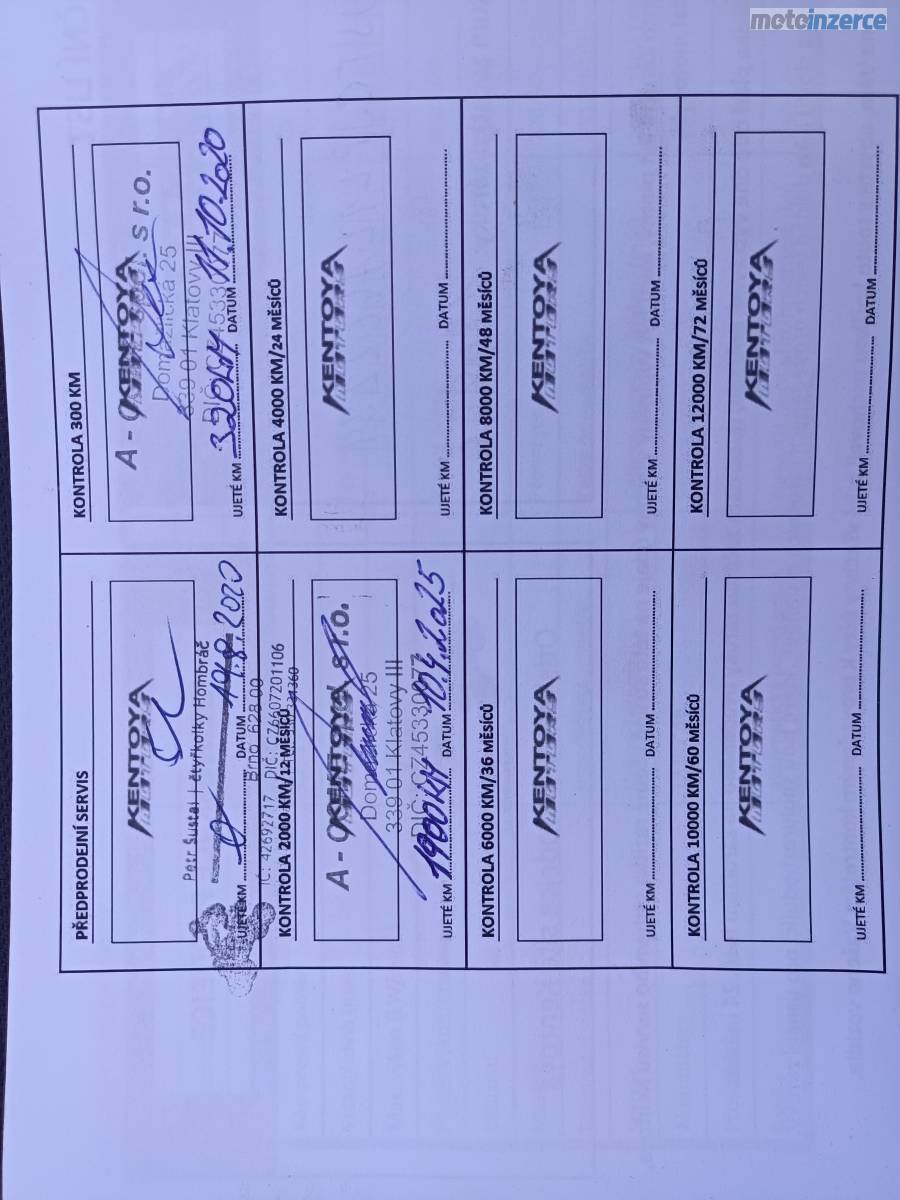 motoinzerce
PŘEDPRODEJNÍ SERVIS
KENTOYA
Petr Šustal | čtyřkolky Hombráč
Brno 628 00
IČ: 42692717 DIČ: CZ6607201106
UJETÉ KM DATUM 19.8.2020
KONTROLA 300 KM
KENTOYA
s r.o.
Domažlická 25
339 01 Klatovy III
UJETÉ KM 320KM DATUM 11.10.2020
KONTROLA 2000 KM/12 MĚSÍCŮ
KENTOYA
s r.o.
339 01 Klatovy III
DIČ: CZ45330077
UJETÉ KM 1900KM DATUM 10.4.2025
KONTROLA 4000 KM/24 MĚSÍCŮ
KENTOYA
UJETÉ KM DATUM
KONTROLA 6000 KM/36 MĚSÍCŮ
KENTOYA
UJETÉ KM DATUM
KONTROLA 8000 KM/48 MĚSÍCŮ
KENTOYA
UJETÉ KM DATUM
KONTROLA 10000 KM/60 MĚSÍCŮ
KENTOYA
UJETÉ KM DATUM
KONTROLA 12000 KM/72 MĚSÍCŮ
KENTOYA
UJETÉ KM DATUM